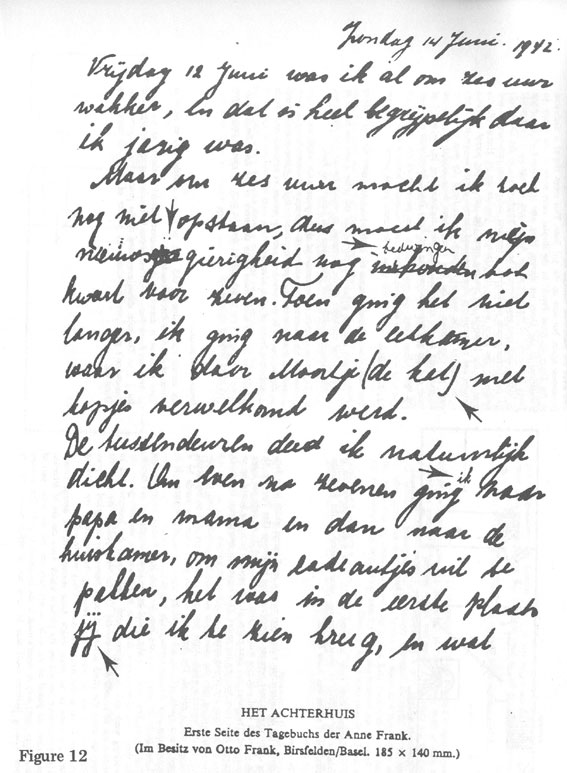 Zondag 14 Juni. 1942.
Vrijdag 12 Juni was ik al om zes uur
wakker, en dat is heel begrijpelijk daar
ik jarig was.
Maar om zes uur mocht ik toch
nog niet opstaan, dus moest ik mijn
bedwingen
nieuwsgierigheid nog inhouden tot
kwart voor zeven. Toen ging het niet
langer, ik ging naar de eetkamer,
waar ik door Moortje (de kat) met
kopjes verwelkomd werd.
De tussendeuren deed ik natuurlijk
ik
dicht. Om even na zevenen ging naar
papa en mama en dan naar de
huiskamer, om mijn cadeautjes uit te
pakken, het was in de eerste plaats
jij die ik te zien kreeg, en wat
HET ACHTERHUIS
Erste Seite des Tagebuchs der Anne Frank.
(Im Besitz von Otto Frank, Birsfelden/Basel. 185 × 140 mm.)
Figure 12